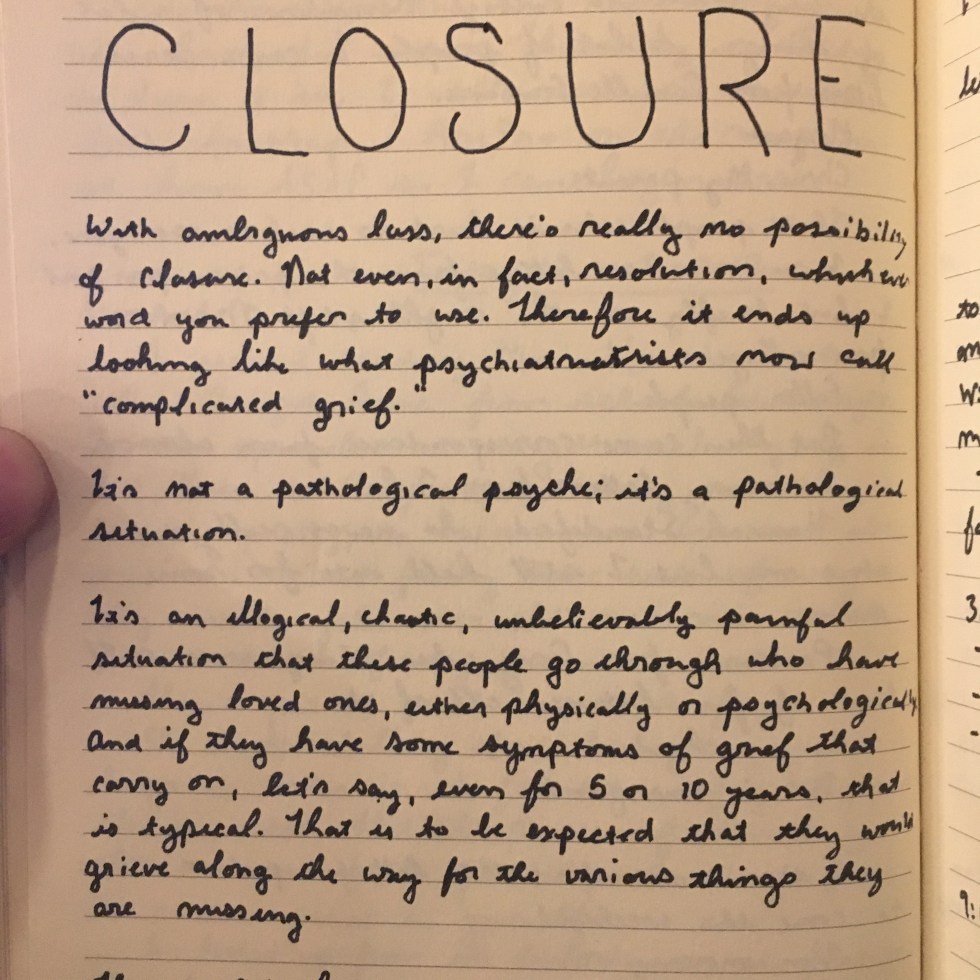 CLOSURE
With ambiguous loss, there's really no possibility
of closure. Not even, in fact, resolution, whichever
word you prefer to use. Therefore it ends up
looking like what now call
"complicated grief."
It's not a pathological psyche; it's a pathological
situation.
It's an illogical, chaotic, unbelievably painful
situation that these people go through who have
missing loved ones, either physically or psychologically
And if they have some symptoms of grief that
carry on, let's say, even for 5 or 10 years, that
is typical. That is to be expected that they would
grieve along the way for the various things they
are missing.